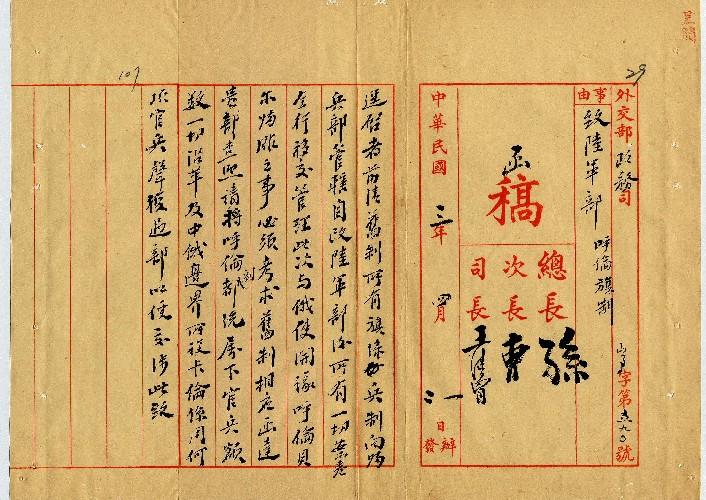 29
外交部政務司
事由 致陸軍部 呼倫旗制
字第五九〇號
函稿
總長 孫
次長 曹
司長 王
中華民國三年四月二一日辦發
逕啟者前清舊制所有旗綠各兵制向歸
兵部管轄自改陸軍部後所有一切案卷
全行移交管理此次與俄使開議呼倫貝
尔之事必須考求舊制相應函達
貴部查照請將呼倫都統屬下官兵額
數一切沿革及中俄邊界所設卡倫係用何
項官兵聲複過部以便交涉此致
107